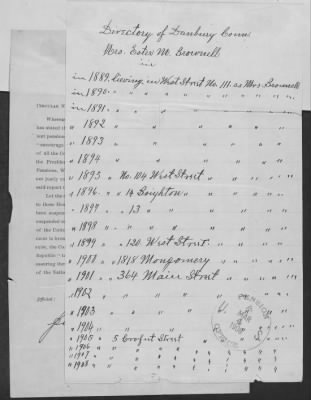 Directory of Danbury Conn
Mrs. Ester M. Brownell
in
in 1889. living in West Street No. 111. as Mrs Brownell
in 1890. " " " " " " " "
in 1891. " " " " " " "
" 1892 " " " " " " "
" 1893 " " " " " " "
" 1894 " " " " " " "
" 1895 " No. 104 West Street " " " "
" 1896. " " 14 Boughton " " " "
" 1897 " " 13 " " " " "
" 1898 " " " " " " "
" 1899 " " 120 West Street. " " " "
" 1900 " 1818 Montgomery " " " "
" 1901 " 364 Main Street " " " "
" 1902 " " " " " " "
" 1903 " " " "
" 1904 " " " "
" 1905 " 5 Crofut Street " "
" 1906 " " " " " " "
" 1907 " " " " " " "
" 1908 " " " " " " "
U. S.
PENSION
MAR
OFFICE
Whereas
has stated th
ent pension
"encourag
of all the Co
the Presiden
Pensions, W
are justly en
self-report
Let the
to those Hon
been suspen
suspended o
of the Unite
ment is brou
nate, the Co
Republic"
assuring the
of the Natio
Official: